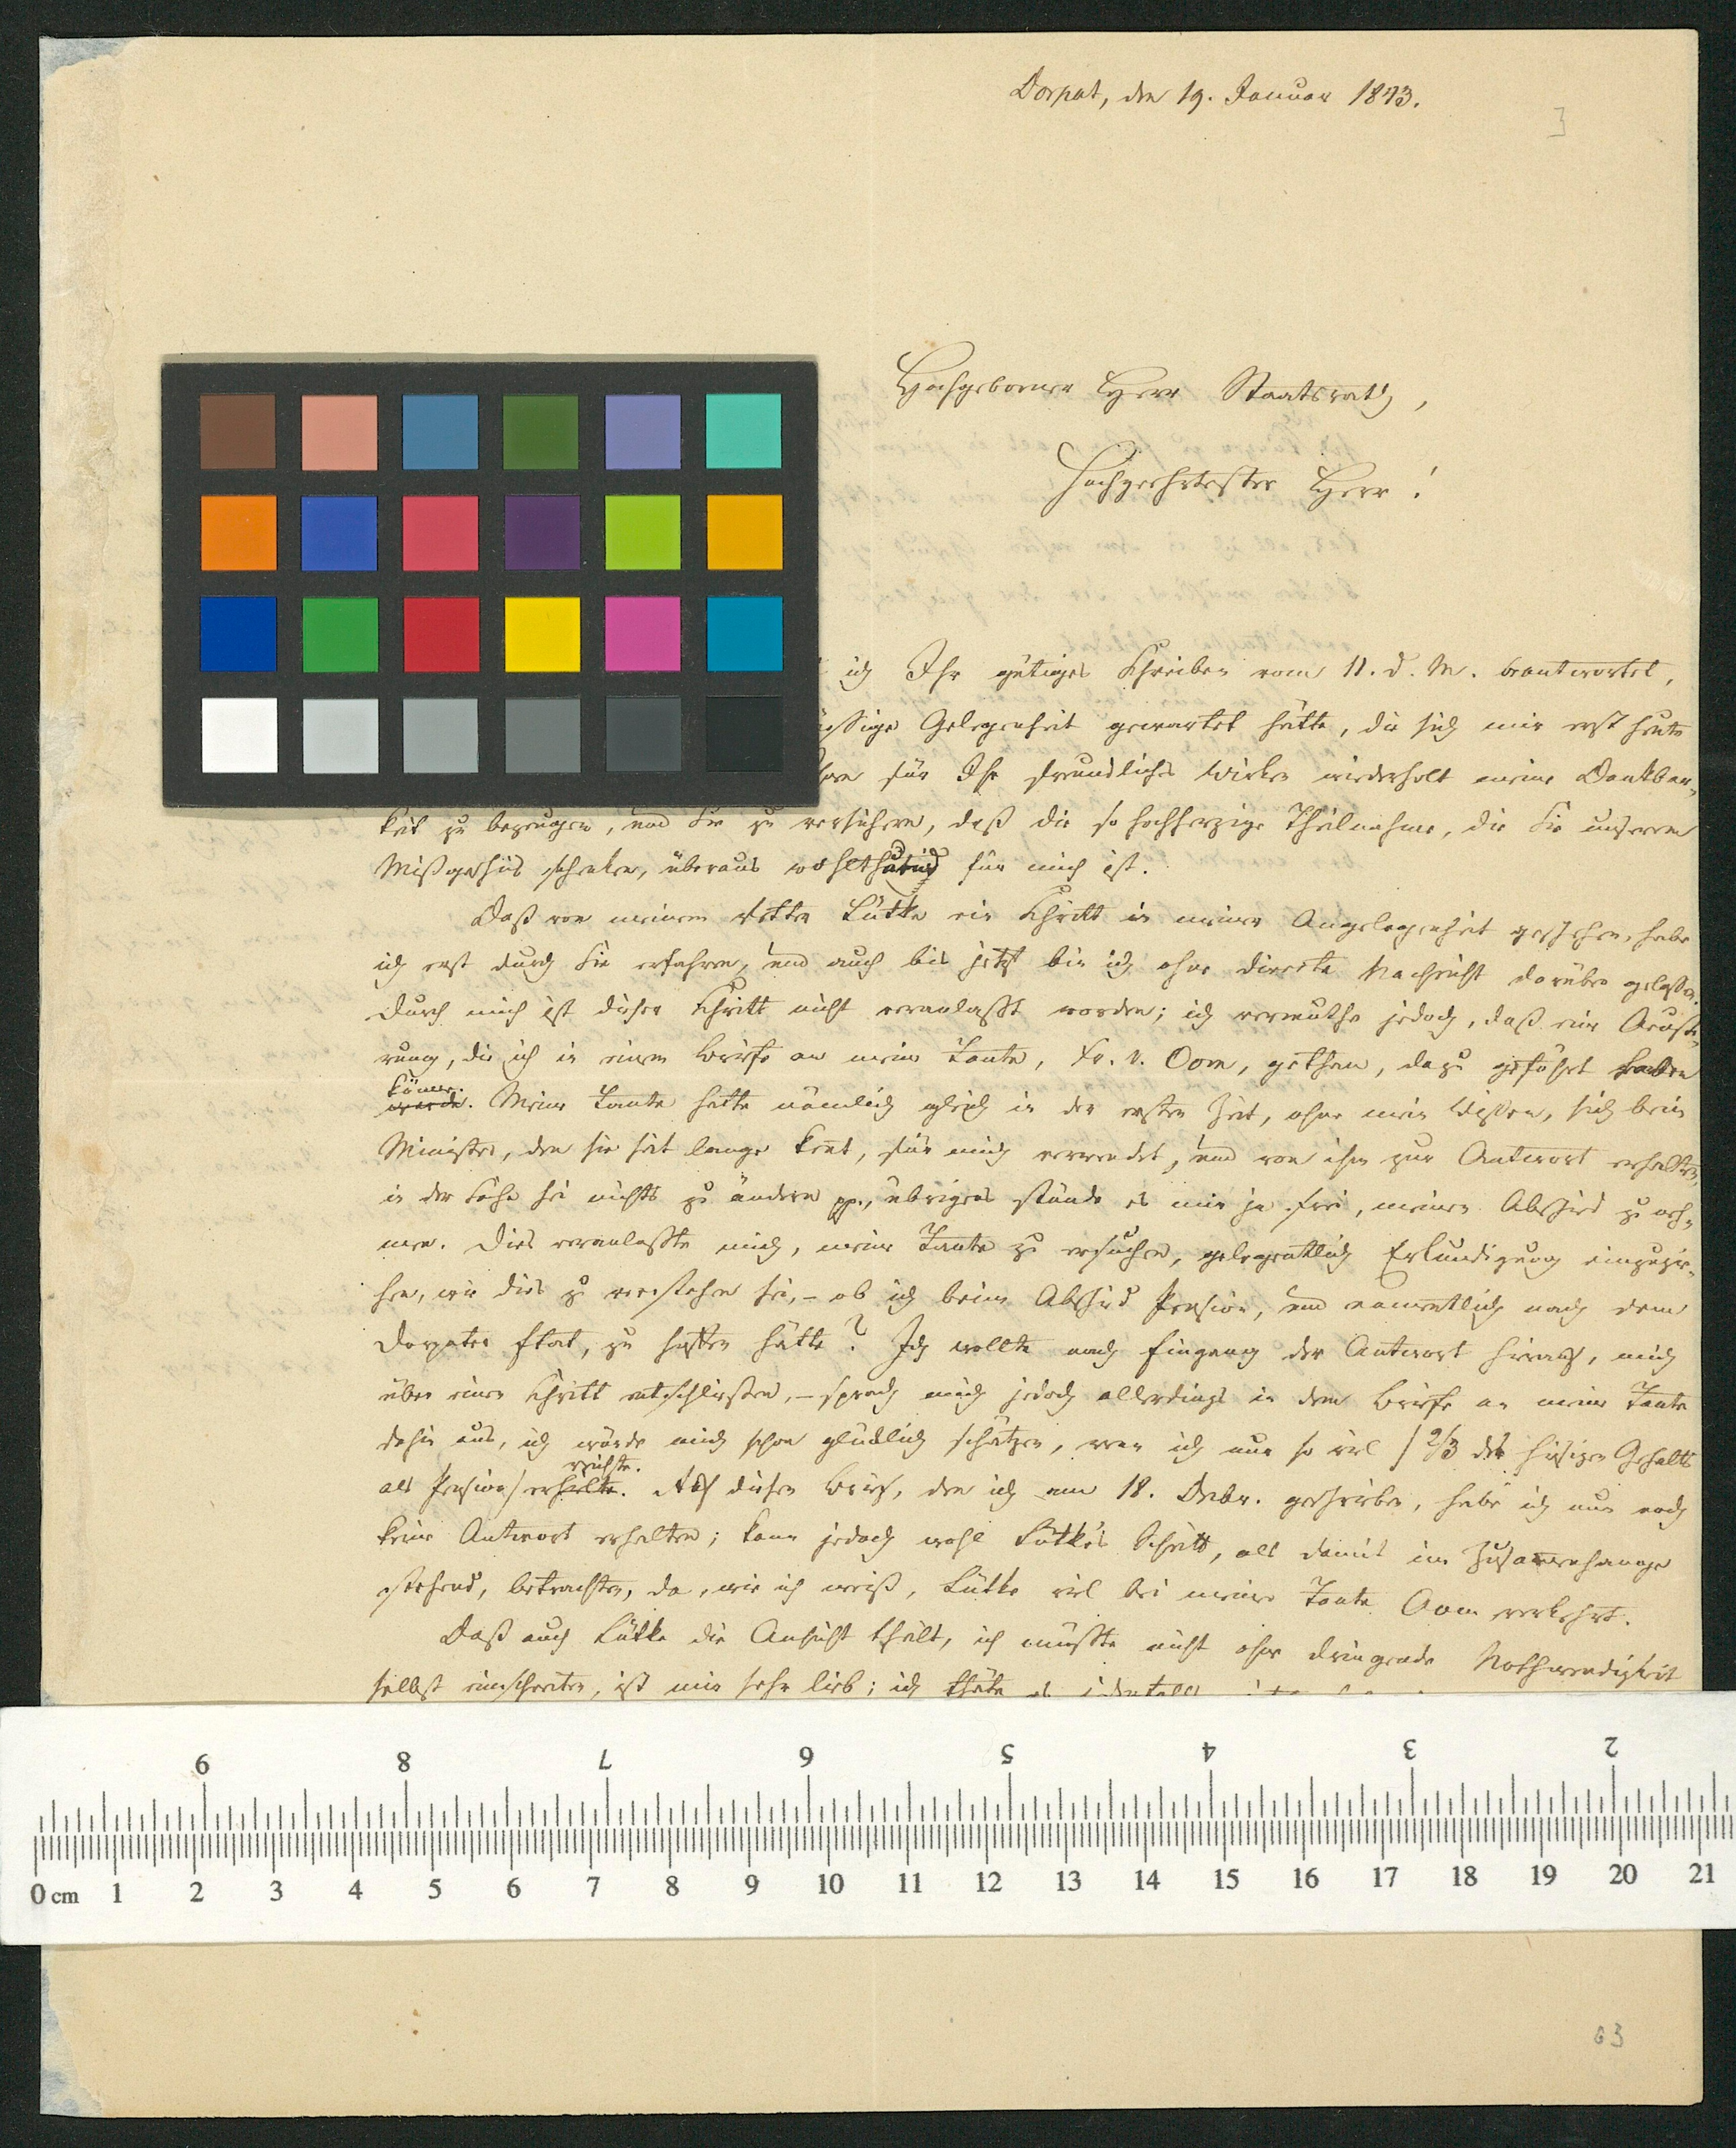 Dorpat, den 19. Januar 1843.
3
Hochgeborner Herr Staatsrath,
Hochgeehrtester Herr!
ich Ihr gütiges Schreiben vom 11. d. M. beantwortet,
ssige Gelegenheit gewartet hätte, die sich mir erst heute
hnen für Ihr freundliches Wirken wiederholt meine Dankbar-
keit zu bezeugen, und Sie zu versichern, daß die so hochherzige Theilnahme, die Sie unserem
Mißgeschick schenken, überaus wohlthuend für mich ist.
Daß von meinem Vetter Lütke ein Schritt in meiner Angelegenheit geschehen, habe
ich erst durch Sie erfahren, und auch bis jetzt bin ich ohne directe Nachricht darüber gelassen.
Durch mich ist dieser Schritt nicht veranlaßt worden; ich vermuthe jedoch, daß eine Aeuße-
rung, die ich in einem Briefe an meine Tante, Fr. v. Oom, gethan, dazu geführt haben
könne.
werde. Meine Tante hatte nämlich gleich in der ersten Zeit, ohne mein Wissen, sich beim
Minister, den sie seit lange kent, für mich verwendet, und von ihm zur Antwort erhalten,
in der Sache sei nichts zu ändern pp., übrigens stände es mir ja frei, meinen Abschied zu neh-
men. Dies veranlaßte mich, meine Tante zu ersuchen, gelegentlich Erkundigung einzuzie-
hen, wie dies zu verstehen sei, – ob ich beim Abschied Pension, und namentlich nach dem
Dorpater Etat, zu hoffen hätte? Ich wollte nach Eingang der Antwort hierauf, mich
über einen Schritt entschließen, – sprach mich jedoch allerdings in dem Briefe an meine Tante
dahin aus, ich würde mich schon glücklich schätzen, wen ich nur so viel / 2/3 des hiesigen Gehalts
reichte.
als Pension/ erhielte. Auf diesen Brief, den ich am 18. Decbr. geschrieben, habe ich nun noch
keine Antwort erhalten; kann jedoch wohl Lütke's Schritt, als damit im Zusammenhange
stehend, betrachten, da, wie ich weiß, Lütke viel bei meiner Tante Oom verkehrt.
Daß auch Lütke die Ansicht theilt, ich müßte nicht ohne dringende Nothwendigkeit
selbst einschreiten, ist mir sehr lieb; ich thäte es
9 8 7 6 5 4 3 2
0 cm 1 2 3 4 5 6 7 8 9 10 11 12 13 14 15 16 17 18 19 20 21
63